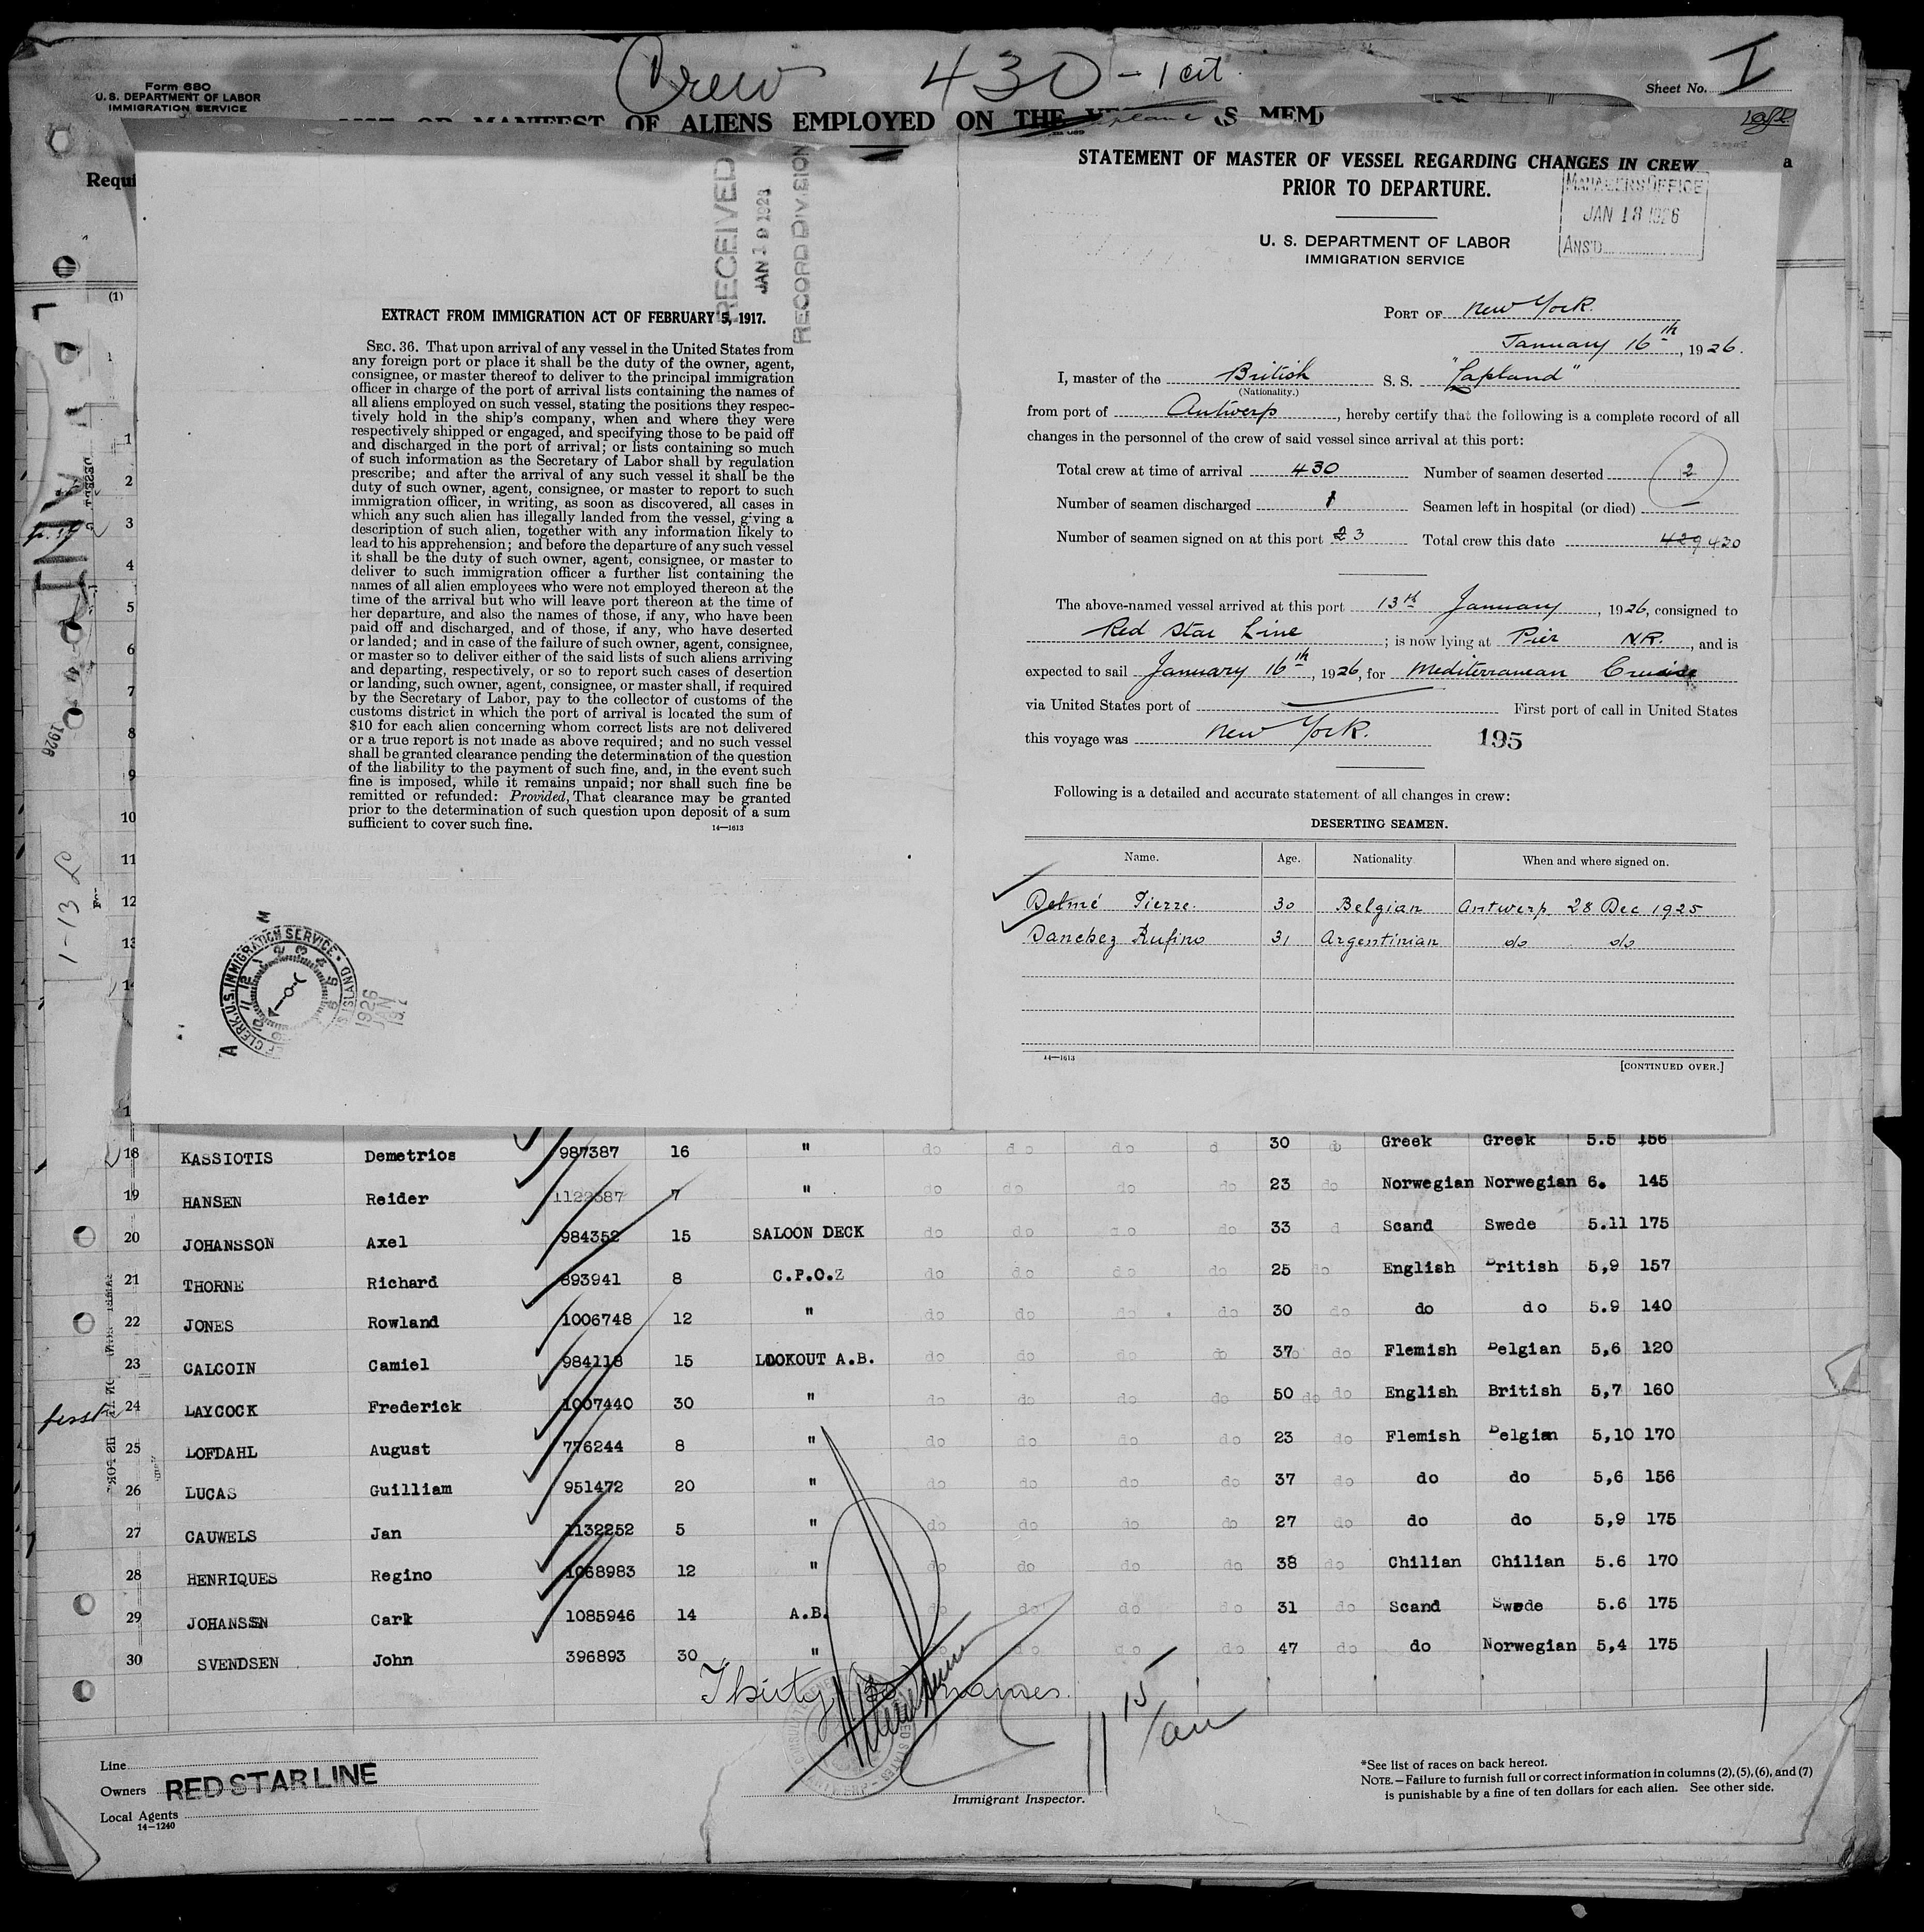 Crew 430 - 1 cit.
Form 680
U. S. DEPARTMENT OF LABOR
IMMIGRATION SERVICE
Sheet No. I
LIST OR MANIFEST OF ALIENS EMPLOYED ON THE
Requi
(1)
RECEIVED
RECORD DIVISION
EXTRACT FROM IMMIGRATION ACT OF FEBRUARY 5, 1917.
SEC. 36. That upon arrival of any vessel in the United States from
any foreign port or place it shall be the duty of the owner, agent,
consignee, or master thereof to deliver to the principal immigration
officer in charge of the port of arrival lists containing the names of
all aliens employed on such vessel, stating the positions they respec-
tively hold in the ship's company, when and where they were
respectively shipped or engaged, and specifying those to be paid off
and discharged in the port of arrival; or lists containing so much
of such information as the Secretary of Labor shall by regulation
prescribe; and after the arrival of any such vessel it shall be the
duty of such owner, agent, consignee, or master to report to such
immigration officer, in writing, as soon as discovered, all cases in
which any such alien has illegally landed from the vessel, giving a
description of such alien, together with any information likely to
lead to his apprehension; and before the departure of any such vessel
it shall be the duty of such owner, agent, consignee, or master to
deliver to such immigration officer a further list containing the
names of all alien employees who were not employed thereon at the
time of the arrival but who will leave port thereon at the time of
her departure, and also the names of those, if any, who have been
paid off and discharged, and of those, if any, who have deserted
or landed; and in case of the failure of such owner, agent, consignee,
or master so to deliver either of the said lists of such aliens arriving
and departing, respectively, or so to report such cases of desertion
or landing, such owner, agent, consignee, or master shall, if required
by the Secretary of Labor, pay to the collector of customs of the
customs district in which the port of arrival is located the sum of
$10 for each alien concerning whom correct lists are not delivered
or a true report is not made as above required; and no such vessel
shall be granted clearance pending the determination of the question
of the liability to the payment of such fine, and, in the event such
fine is imposed, while it remains unpaid; nor shall such fine be
remitted or refunded: Provided, That clearance may be granted
prior to the determination of such question upon deposit of a sum
sufficient to cover such fine.
14—1613
STATEMENT OF MASTER OF VESSEL REGARDING CHANGES IN CREW
PRIOR TO DEPARTURE.
MANAGERS OFFICE
JAN 18 1926
ANS'D
U. S. DEPARTMENT OF LABOR
IMMIGRATION SERVICE
PORT OF New York.
January 16th, 1926.
I, master of the British S. S. "Lapland"
(Nationality.)
from port of Antwerp, hereby certify that the following is a complete record of all
changes in the personnel of the crew of said vessel since arrival at this port:
Total crew at time of arrival 430 Number of seamen deserted 2
Number of seamen discharged 1 Seamen left in hospital (or died) —
Number of seamen signed on at this port 23 Total crew this date 429 430
The above-named vessel arrived at this port 13th January, 1926, consigned to
Red Star Line; is now lying at Pier NR., and is
expected to sail January 16th, 1926, for Mediterranean Cruise
via United States port of — First port of call in United States
this voyage was New York. 195
Following is a detailed and accurate statement of all changes in crew:
DESERTING SEAMEN.
Name. Age. Nationality When and where signed on.
Delmé Pierre. 30 Belgian Antwerp 28 Dec 1925
Sanchez Rufino 31 Argentinian do do
14—1613
[CONTINUED OVER.]
18 KASSIOTIS Demetrios 987387 16 " do do do d 30 do Greek Greek 5.5 156
19 HANSEN Reider 7 " do do do do 23 do Norwegian Norwegian 6. 145
20 JOHANSSON Axel 984352 15 SALOON DECK do do do do 33 d Scand Swede 5.11 175
21 THORNE Richard 893941 8 C.P.O.Z do do do do 25 do English British 5,9 157
22 JONES Rowland 1006748 12 " do do do do 30 do do do 5.9 140
23 CALCOIN Camiel 984118 15 LOOKOUT A.B. do do do do 37 do Flemish Belgian 5,6 120
24 LAYCOCK Frederick 1007440 30 " do do do do 50 do do English British 5,7 160
25 LOFDAHL August 776244 8 " do do do do 23 do Flemish Belgian 5,10 170
26 LUCAS Guilliam 951472 20 " do do do do 37 do do do 5,6 156
27 CAUWELS Jan 1132252 5 " do do do do 27 do do do 5,9 175
28 HENRIQUES Regino 1068983 12 " do do do do 38 do Chilian Chilian 5.6 170
29 JOHANSSN Cark 1085946 14 A.B. do do do do 31 do Scand Swede 5.6 175
30 SVENDSEN John 396893 30 " do do do do 47 do do Norwegian 5,4 175
Thirty names.
Line
Owners RED STAR LINE
Local Agents
14—1240
Immigrant Inspector.
*See list of races on back hereof.
NOTE.—Failure to furnish full or correct information in columns (2), (5), (6), and (7)
is punishable by a fine of ten dollars for each alien. See other side.